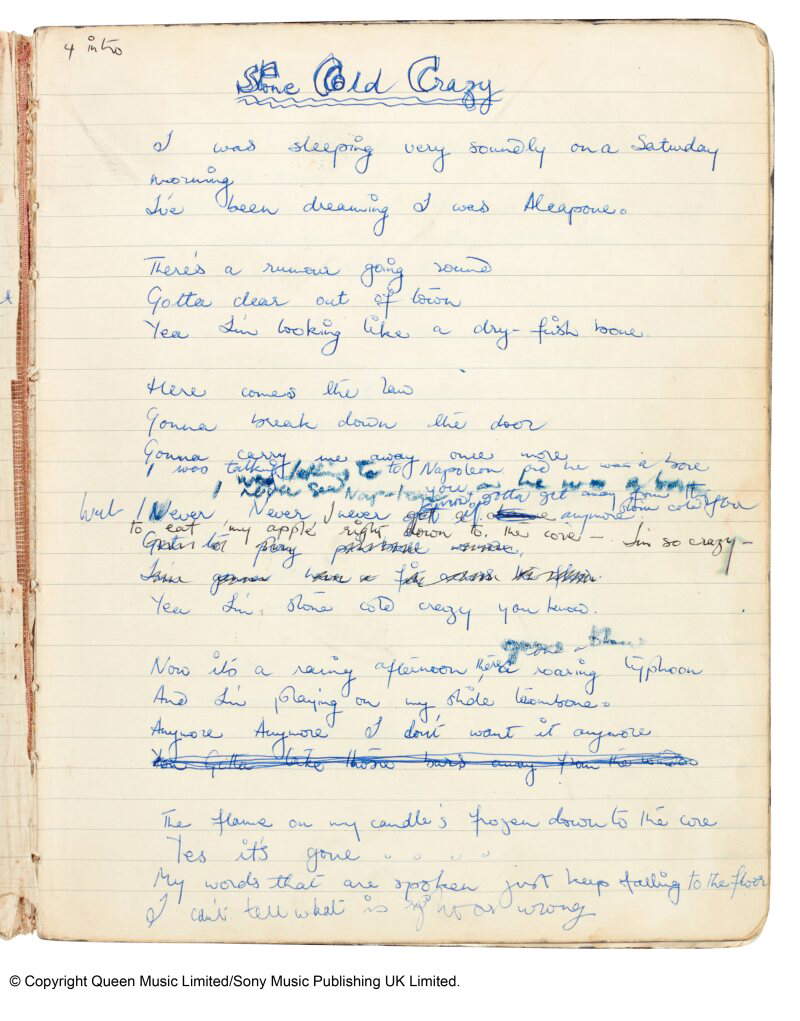 4 intro
Stone Cold Crazy
I was sleeping very soundly on a Saturday
morning
I've been dreaming I was Alcapone.
There's a rumour going round
Gotta clear out of town
Yea I'm looking like a dry-fish bone
Here comes the law
Gonna break down the door
Gonna carry me away once more
I was talking to Napoleon and he was a bore
I never
gotta get away from this stone cold floor
but I Never Never I never get it anymore
to eat my apple right down to the core - I'm so crazy -
Yea I'm stone cold crazy you know.
Now it's a rainy afternoon there's a roaring typhoon
And I'm playing on my slide trombone.
Anymore Anymore I don't want it anymore
You Gotta take those away from the
The flame on my candle's frozen down to the core
Yes it's gone . . . . .
My words that are spoken just keep falling to the floor
I can't tell what is if it was wrong
© Copyright Queen Music Limited/Sony Music Publishing UK Limited.